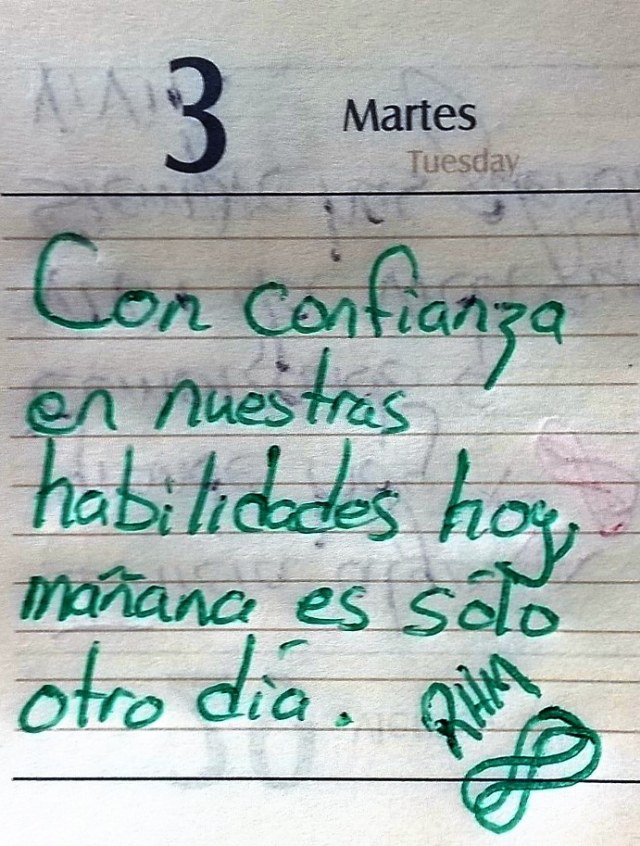 3 Martes
Tuesday
Con confianza
en nuestras
habilidades hoy,
mañana es sólo
otro día.
RHM